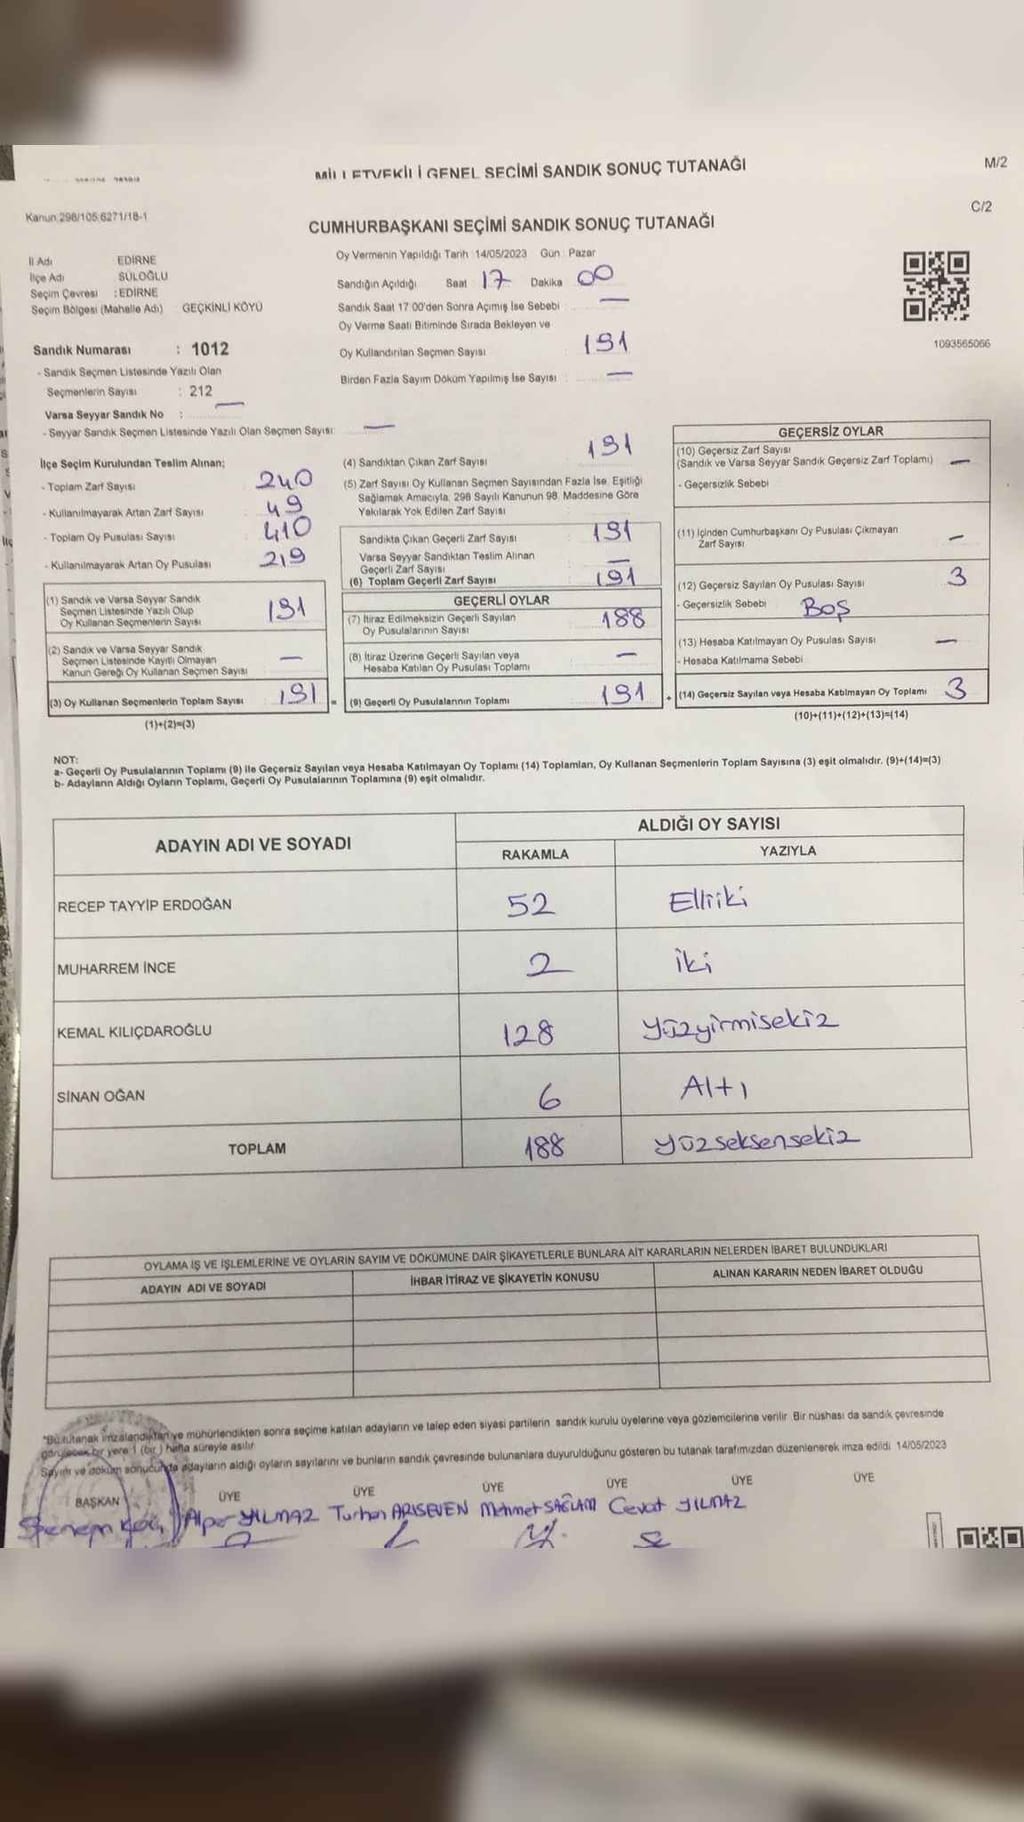 MİLLETVEKİLİ GENEL SEÇİMİ SANDIK SONUÇ TUTANAĞI
M/2
Kanun:298/105;6271/18-1
C/2
CUMHURBAŞKANI SEÇİMİ SANDIK SONUÇ TUTANAĞI
İl Adı EDİRNE
İlçe Adı SÜLOĞLU
Seçim Çevresi : EDİRNE
Seçim Bölgesi (Mahalle Adı) GEÇKİNLİ KÖYÜ
Sandık Numarası : 1012
- Sandık Seçmen Listesinde Yazılı Olan
Seçmenlerin Sayısı : 212
Varsa Seyyar Sandık No : —
- Seyyar Sandık Seçmen Listesinde Yazılı Olan Seçmen Sayısı: —
Oy Vermenin Yapıldığı Tarih 14/05/2023 Gün : Pazar
Sandığın Açıldığı Saat 17 Dakika 00
Sandık Saat 17:00'den Sonra Açılmış İse Sebebi —
Oy Verme Saati Bitiminde Sırada Bekleyen ve
Oy Kullandırılan Seçmen Sayısı 191
Birden Fazla Sayım Döküm Yapılmış İse Sayısı : —
1093565066
İlçe Seçim Kurulundan Teslim Alınan;
- Toplam Zarf Sayısı 240
- Kullanılmayarak Artan Zarf Sayısı 49
- Toplam Oy Pusulası Sayısı 410
- Kullanılmayarak Artan Oy Pusulası 219
(1) Sandık ve Varsa Seyyar Sandık
Seçmen Listesinde Yazılı Olup
Oy Kullanan Seçmenlerin Sayısı 191
(2) Sandık ve Varsa Seyyar Sandık
Seçmen Listesinde Kayıtlı Olmayan
Kanun Gereği Oy Kullanan Seçmen Sayısı —
(3) Oy Kullanan Seçmenlerin Toplam Sayısı 191 =
(1)+(2)=(3)
(4) Sandıktan Çıkan Zarf Sayısı 191
(5) Zarf Sayısı Oy Kullanan Seçmen Sayısından Fazla İse, Eşitliği
Sağlamak Amacıyla, 298 Sayılı Kanunun 98. Maddesine Göre
Yakılarak Yok Edilen Zarf Sayısı
Sandıkta Çıkan Geçerli Zarf Sayısı 191
Varsa Seyyar Sandıktan Teslim Alınan
Geçerli Zarf Sayısı —
(6) Toplam Geçerli Zarf Sayısı 191
GEÇERLİ OYLAR
(7) İtiraz Edilmeksizin Geçerli Sayılan
Oy Pusulalarının Sayısı 188
(8) İtiraz Üzerine Geçerli Sayılan veya
Hesaba Katılan Oy Pusulası Toplamı —
(9) Geçerli Oy Pusulalarının Toplamı 191 +
GEÇERSİZ OYLAR
(10) Geçersiz Zarf Sayısı
(Sandık ve Varsa Seyyar Sandık Geçersiz Zarf Toplamı) —
- Geçersizlik Sebebi
(11) İçinden Cumhurbaşkanı Oy Pusulası Çıkmayan
Zarf Sayısı —
(12) Geçersiz Sayılan Oy Pusulası Sayısı 3
- Geçersizlik Sebebi BOŞ
(13) Hesaba Katılmayan Oy Pusulası Sayısı —
- Hesaba Katılmama Sebebi
(14) Geçersiz Sayılan veya Hesaba Katılmayan Oy Toplamı 3
(10)+(11)+(12)+(13)=(14)
NOT:
a- Geçerli Oy Pusulalarının Toplamı (9) ile Geçersiz Sayılan veya Hesaba Katılmayan Oy Toplamı (14) Toplamları, Oy Kullanan Seçmenlerin Toplam Sayısına (3) eşit olmalıdır. (9)+(14)=(3)
b- Adayların Aldığı Oyların Toplamı, Geçerli Oy Pusulalarının Toplamına (9) eşit olmalıdır.
ADAYIN ADI VE SOYADI ALDIĞI OY SAYISI
RAKAMLA YAZIYLA
RECEP TAYYİP ERDOĞAN 52 Elliiki
MUHARREM İNCE 2 iki
KEMAL KILIÇDAROĞLU 128 yüzyirmisekiz
SİNAN OĞAN 6 Altı
TOPLAM 188 yüzseksensekiz
OYLAMA İŞ VE İŞLEMLERİNE VE OYLARIN SAYIM VE DÖKÜMÜNE DAİR ŞİKAYETLERLE BUNLARA AİT KARARLARIN NELERDEN İBARET BULUNDUKLARI
ADAYIN ADI VE SOYADI İHBAR İTİRAZ VE ŞİKAYETİN KONUSU ALINAN KARARIN NEDEN İBARET OLDUĞU
*Bu tutanak imzalandıktan ve mühürlendikten sonra seçime katılan adayların ve talep eden siyasi partilerin sandık kurulu üyelerine veya gözlemcilerine verilir. Bir nüshası da sandık çevresinde
görülecek bir yere 1 (bir) hafta süreyle asılır.
Sayım ve döküm sonucunda adayların aldığı oyların sayılarını ve bunların sandık çevresinde bulunanlara duyurulduğunu gösteren bu tutanak tarafımızdan düzenlenerek imza edildi. 14/05/2023
BAŞKAN ÜYE ÜYE ÜYE ÜYE ÜYE ÜYE
Alper YILMAZ Turhan ARISEVEN Mehmet SAĞLAM Cevat YILMAZ